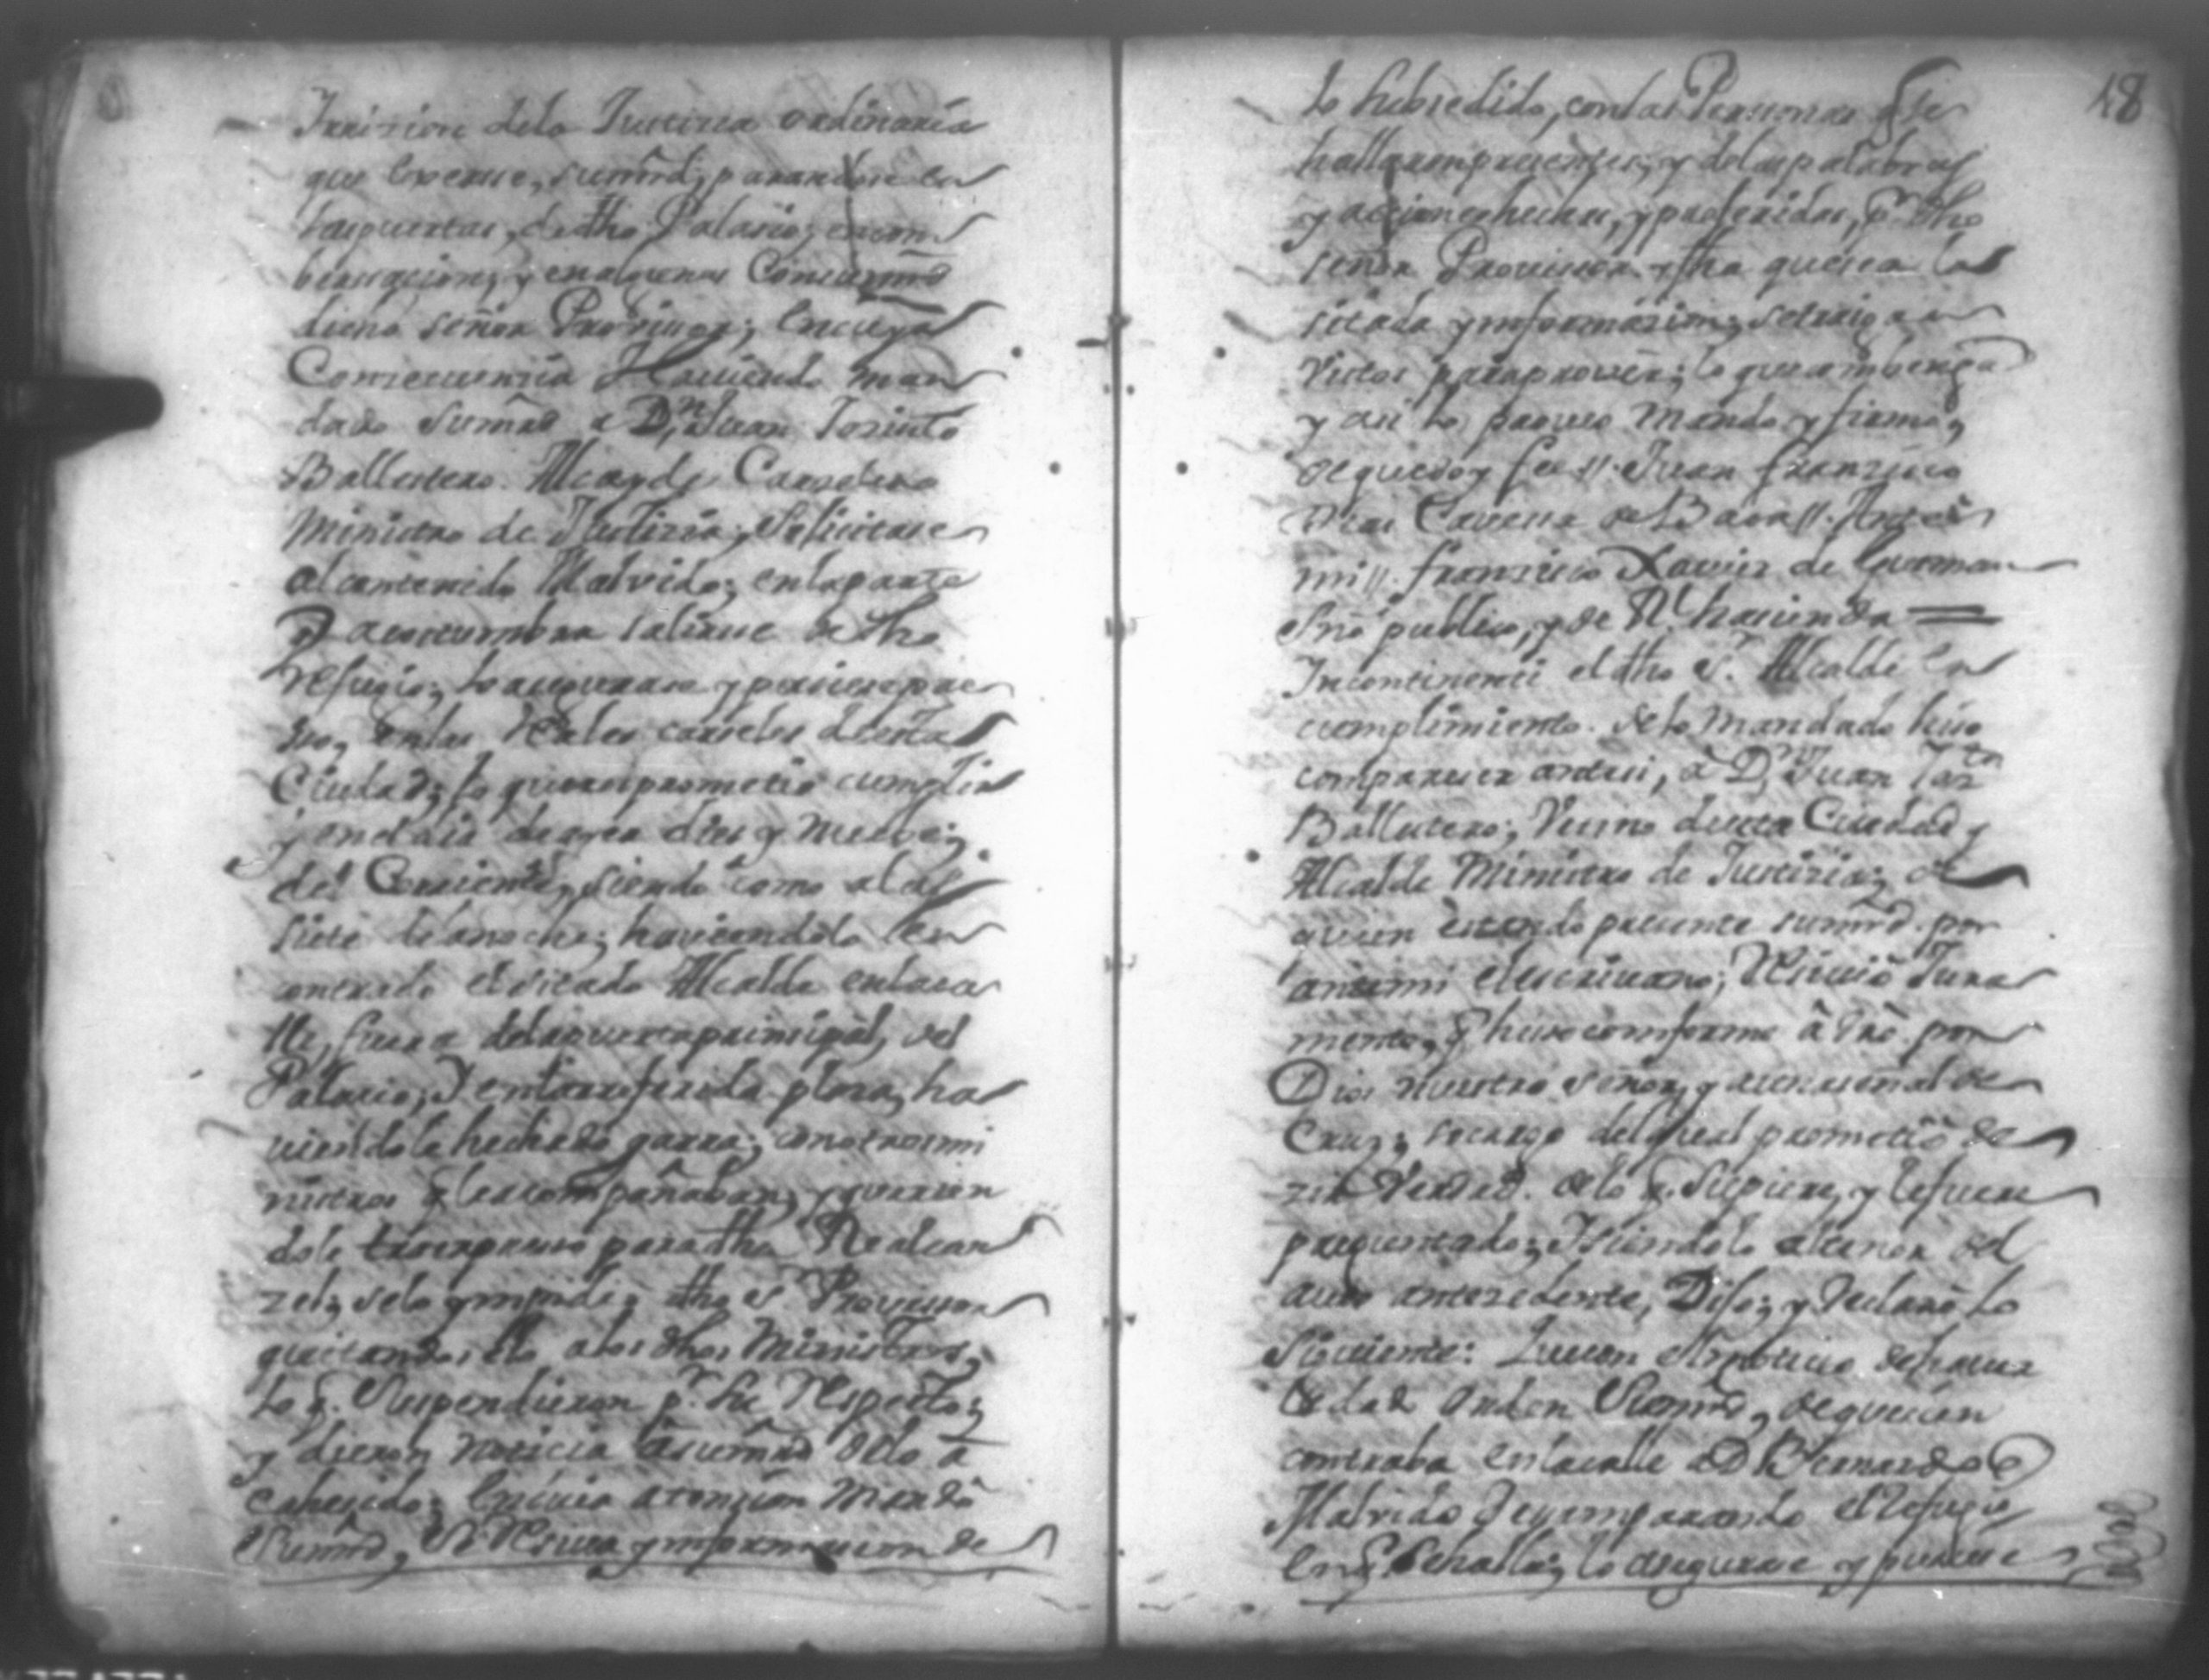 Irricion dela Justicia ordinaria
que exerse, sumrd; parandose en
las puertas, de dho Palasio; en com
bersacion, y en algunas
dicho señor Provisor; en cuya
Consecuencia Haviendo man
dado sumrd a Dn Juan Jasinto
Ballestero Alcayde Carselero
Ministro de Justicia, Solicitase
al contenido Malvido; en la parte
q acostumbra salirse de dho
refugio; lo asegurase y pusiese pre
so, en las Rales carseles de esta
Ciudad; lo que prometio cumplir
y en el dia de ayer dies y nueve;
del Corriente, siendo como a las
siete de la noche; haviendolo en
contrado el sitado Alcalde en la ca
lle, fuera de la puerta prinsipal, del
Palacio, y en la referida plasa, ha
viendole hechado garra; con otros mi
nistros q le acompañaban, y querien
dole traer preso para dha Real car
zel; se lo ympidio; dho sr. Provisor
quitandosello a los dhos Ministros,
lo q. Suspendieron pr. su Respecto;
y dieron noticia a sumrd delo a
cahesido; en cuia atencion Mandó
Sumrd, Se Resiva ynformacion de
18
lo subsedido, con las Personas q se
hallaron presentes; y de las palabras
y acciones hechas, y proferidas, pr. dho
señor Provisor y fha que sea la
sitada ynformazion; se traiga a
vistos para prover; lo que combenga
y asi lo proveo mando y firmo;
de que doy fee // Juan Fransisco
Dias Cavesa de Baca // Ante
mi // Fransisco Xavier de Gusman
Srio publico, y de Rl hacienda =
Incontinenti el dho sr. Alcalde en
cumplimiento de lo mandado hiso
compareser antesi, a Dn Juan Jazto
Ballestero; Vesino de esta Ciudad y
Alcalde Ministro de Justizia; de
quien estando presente sumrd. por
ante mi el escrivano; Resivió Jura
mento, q hiso comforme á dro. por
Dios nuestro señor, y a una señal de
Cruz; so cargo del qual prometió de
zir Verdad. de lo q. supiere, y le fuere
preguntado; y siendolo al tenor del
auto antezedente, Dijo; y declaró lo
Siguiente: Que con el motivo de haver
le dado orden Sumrd, de que si en
contraba en la calle a Dn Bernardo
Malvido desamparando el refugio
en q se halla; lo asegurase y pusiese